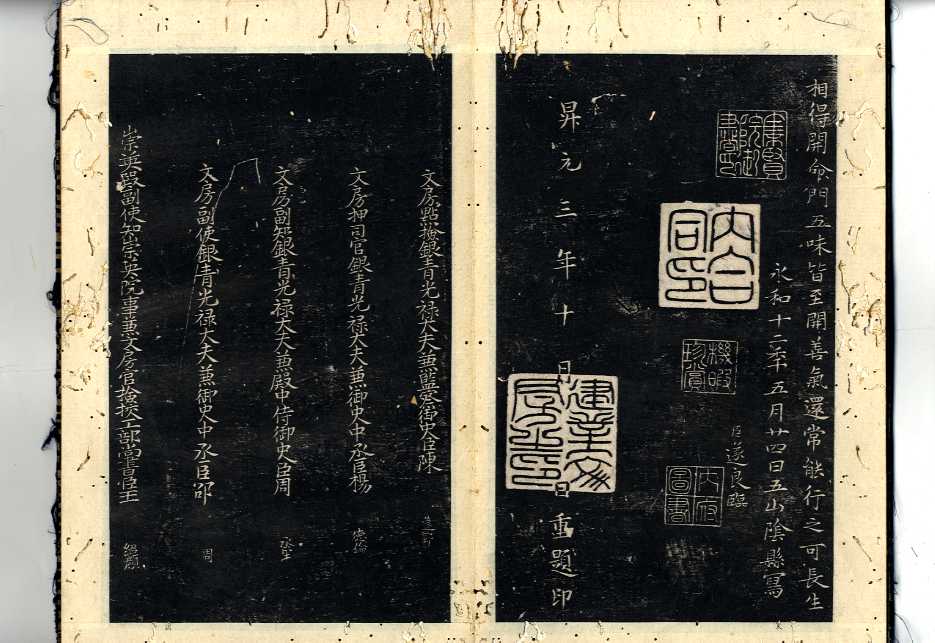 相得開命門五味皆至開善氣還常能行之可長生
永和十二年五月廿四日五山陰縣寫
臣遂良臨
集賢院御書印
內合同印
機暇珍賞
內府圖書
昇元三年十 月 日重題印
建業文房之印
文房點檢銀青光祿大夫兼監察御史臣陳
文房押司官銀青光祿大夫兼御史中丞臣楊
文房副知銀青光祿大夫兼殿中侍御史臣周
文房副使銀青光祿大夫兼御史中丞臣邵 周
崇英殿副使知崇英院事兼文房官檢校工部尚書臣王 紹顏